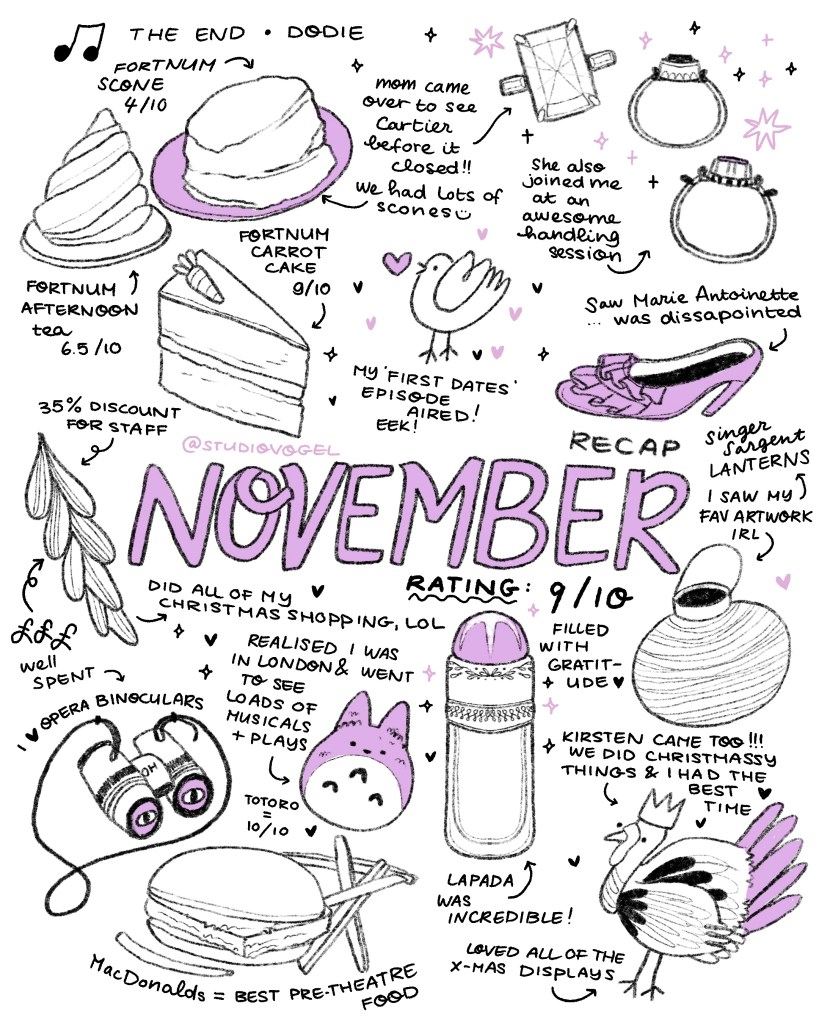 THE END • DODIE
FORTNUM
SCONE
4/10
mom came
over to see
Cartier
before it
closed!!
we had lots of
scones
She also
joined me
at an
awesome
handling
session
FORTNUM
CARROT
CAKE
9/10
FORTNUM
AFTERNOON
tea
6.5/10
MY 'FIRST DATES'
EPISODE
AIRED!
EEK!
Saw Marie Antoinette
... was dissapointed
35% DISCOUNT
FOR STAFF
@STUDIOVOGEL
RECAP
NOVEMBER
RATING: 9/10
singer
sargent
LANTERNS
I SAW MY
FAV ARTWORK
IRL
£££
well
SPENT
DID ALL OF MY
CHRISTMAS SHOPPING, LOL
FILLED
WITH
GRATIT-
UDE♥
I ♥ OPERA BINOCULARS
OH
REALISED I WAS
IN LONDON & WENT
TO SEE
LOADS OF
MUSICALS
+ PLAYS
TOTORO
=
10/10
KIRSTEN CAME TOO!!!
WE DID CHRISTMASSY
THINGS & I HAD THE
BEST
TIME
LAPADA
WAS
INCREDIBLE!
LOVED ALL OF THE
X-MAS DISPLAYS
MacDonalds = BEST PRE-THEATRE
FOOD